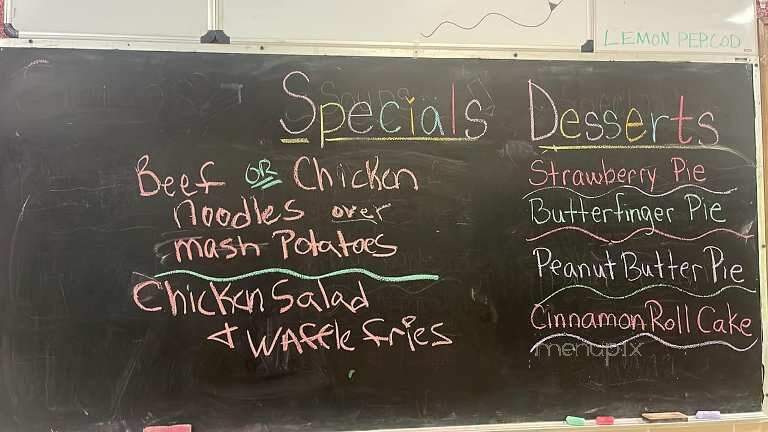 LEMON PEPCOD
Specials
Beef OR Chicken
Noodles over
mash Potatoes
Chicken Salad
+ Waffle fries
Desserts
Strawberry Pie
Butterfinger Pie
Peanut Butter Pie
Cinnamon Roll Cake
menupix